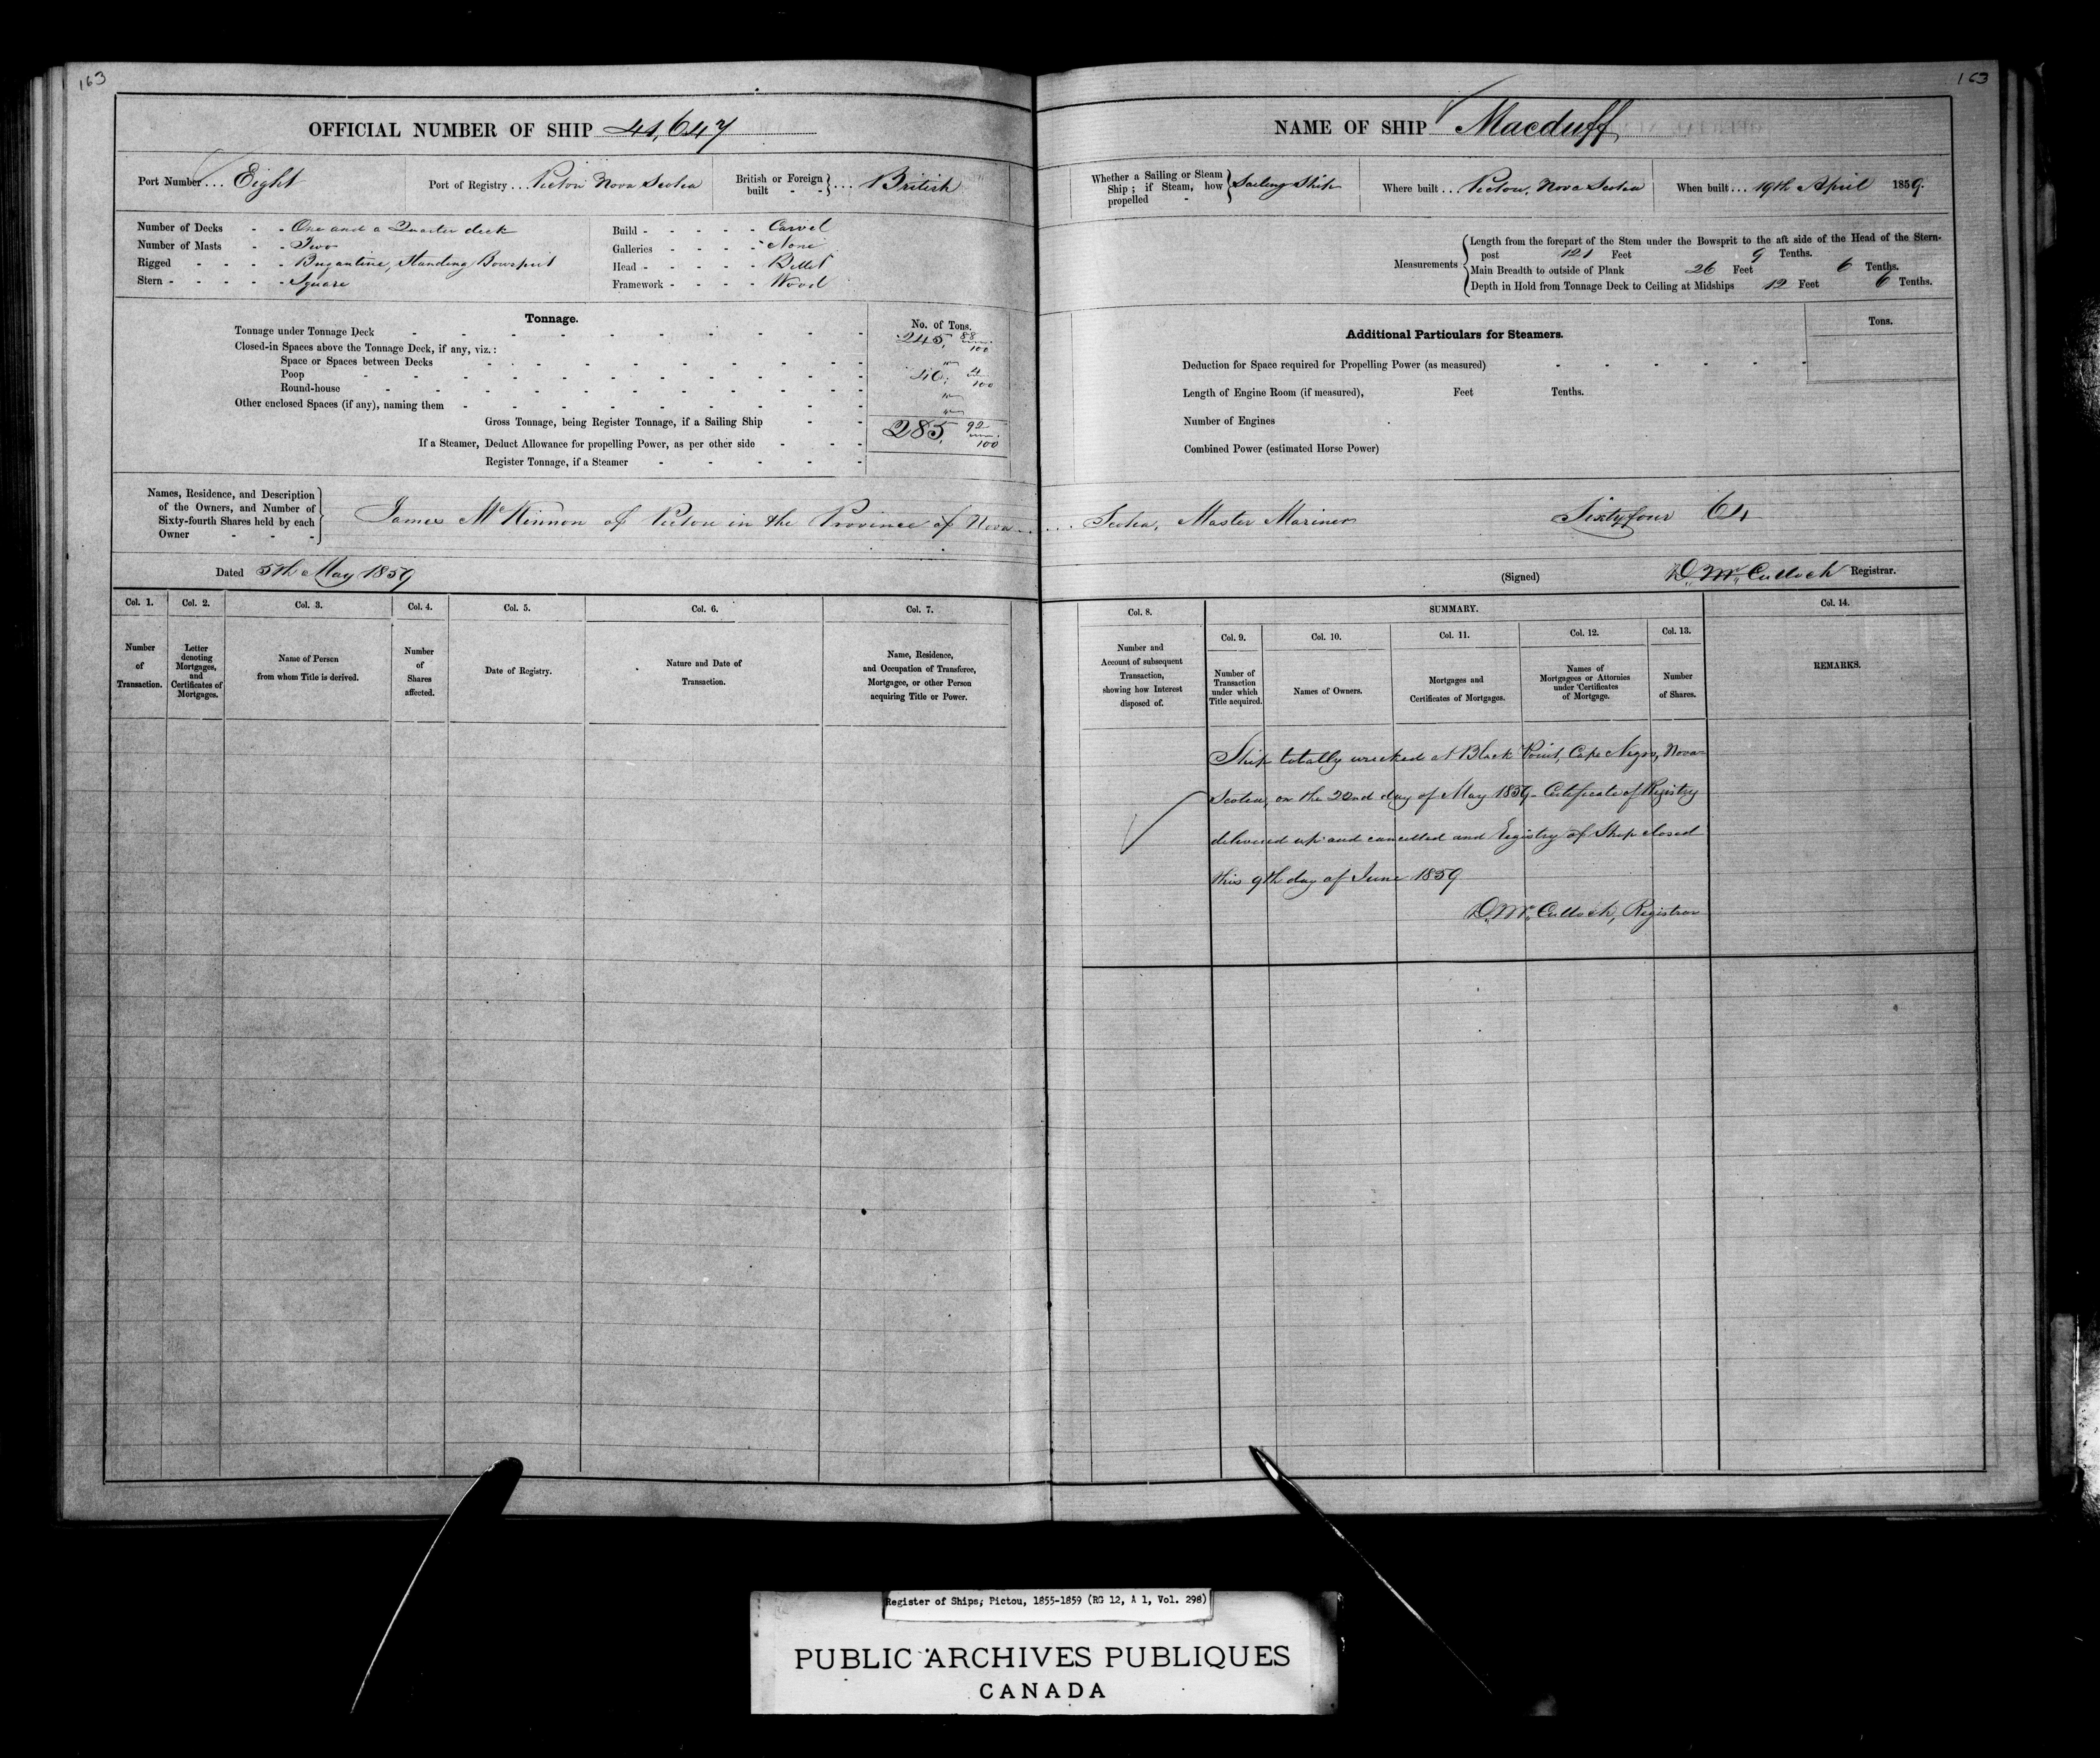 163
163
OFFICIAL NUMBER OF SHIP 41,647
Port Number ... Eight
Port of Registry ... Pictou Nova Scotia
British or Foreign built - - } ... British
Number of Decks - - One and a Quarter deck
Number of Masts - - Two
Rigged - - - - Brigantine, Standing Bowsprit
Stern - - - - - Square
Build - - - - - Carvel
Galleries - - - - None
Head - - - - - Billet
Framework - - - - Wood
Tonnage.
No. of Tons.
Tonnage under Tonnage Deck 245, 88/100
Closed-in Spaces above the Tonnage Deck, if any, viz.:
Space or Spaces between Decks
Poop 40, 4/100
Round-house
Other enclosed Spaces (if any), naming them
Gross Tonnage, being Register Tonnage, if a Sailing Ship 285, 92/100
If a Steamer, Deduct Allowance for propelling Power, as per other side
Register Tonnage, if a Steamer
NAME OF SHIP Macduff
Whether a Sailing or Steam Ship; if Steam, how propelled - { Sailing Ship
Where built ... Pictou, Nova Scotia
When built ... 19th April 1859.
Measurements
Length from the forepart of the Stem under the Bowsprit to the aft side of the Head of the Stern-
post 121 Feet 9 Tenths.
Main Breadth to outside of Plank 26 Feet 6 Tenths.
Depth in Hold from Tonnage Deck to Ceiling at Midships 12 Feet 6 Tenths.
Additional Particulars for Steamers.
Tons.
Deduction for Space required for Propelling Power (as measured)
Length of Engine Room (if measured), Feet Tenths.
Number of Engines
Combined Power (estimated Horse Power)
Names, Residence, and Description
of the Owners, and Number of
Sixty-fourth Shares held by each
Owner - - -
James McKinnon of Pictou in the Province of Nova .... Scotia, Master Mariner Sixty four 64
Dated 5th May 1859
(Signed) D. McCulloch Registrar.
Col. 1.
Number
of
Transaction.
Col. 2.
Letter
denoting
Mortgages,
and
Certificates of
Mortgages.
Col. 3.
Name of Person
from whom Title is derived.
Col. 4.
Number
of
Shares
affected.
Col. 5.
Date of Registry.
Col. 6.
Nature and Date of
Transaction.
Col. 7.
Name, Residence,
and Occupation of Transferee,
Mortgagee, or other Person
acquiring Title or Power.
Col. 8.
Number and
Account of subsequent
Transaction,
showing how Interest
disposed of.
SUMMARY.
Col. 9.
Number of
Transaction
under which
Title acquired.
Col. 10.
Names of Owners.
Col. 11.
Mortgages and
Certificates of Mortgages.
Col. 12.
Names of
Mortgagees or Attornies
under Certificates
of Mortgage.
Col. 13.
Number
of Shares.
Col. 14.
REMARKS.
Ship totally wrecked at Black Point, Cape Negro, Nova
Scotia, on the 22nd day of May 1859 - Certificate of Registry
delivered up and cancelled and Registry of Ship closed
this 9th day of June 1859
D. McCulloch, Registrar
Register of Ships, Pictou, 1855-1859 (RG 12, A 1, Vol. 298)
PUBLIC ARCHIVES PUBLIQUES
CANADA